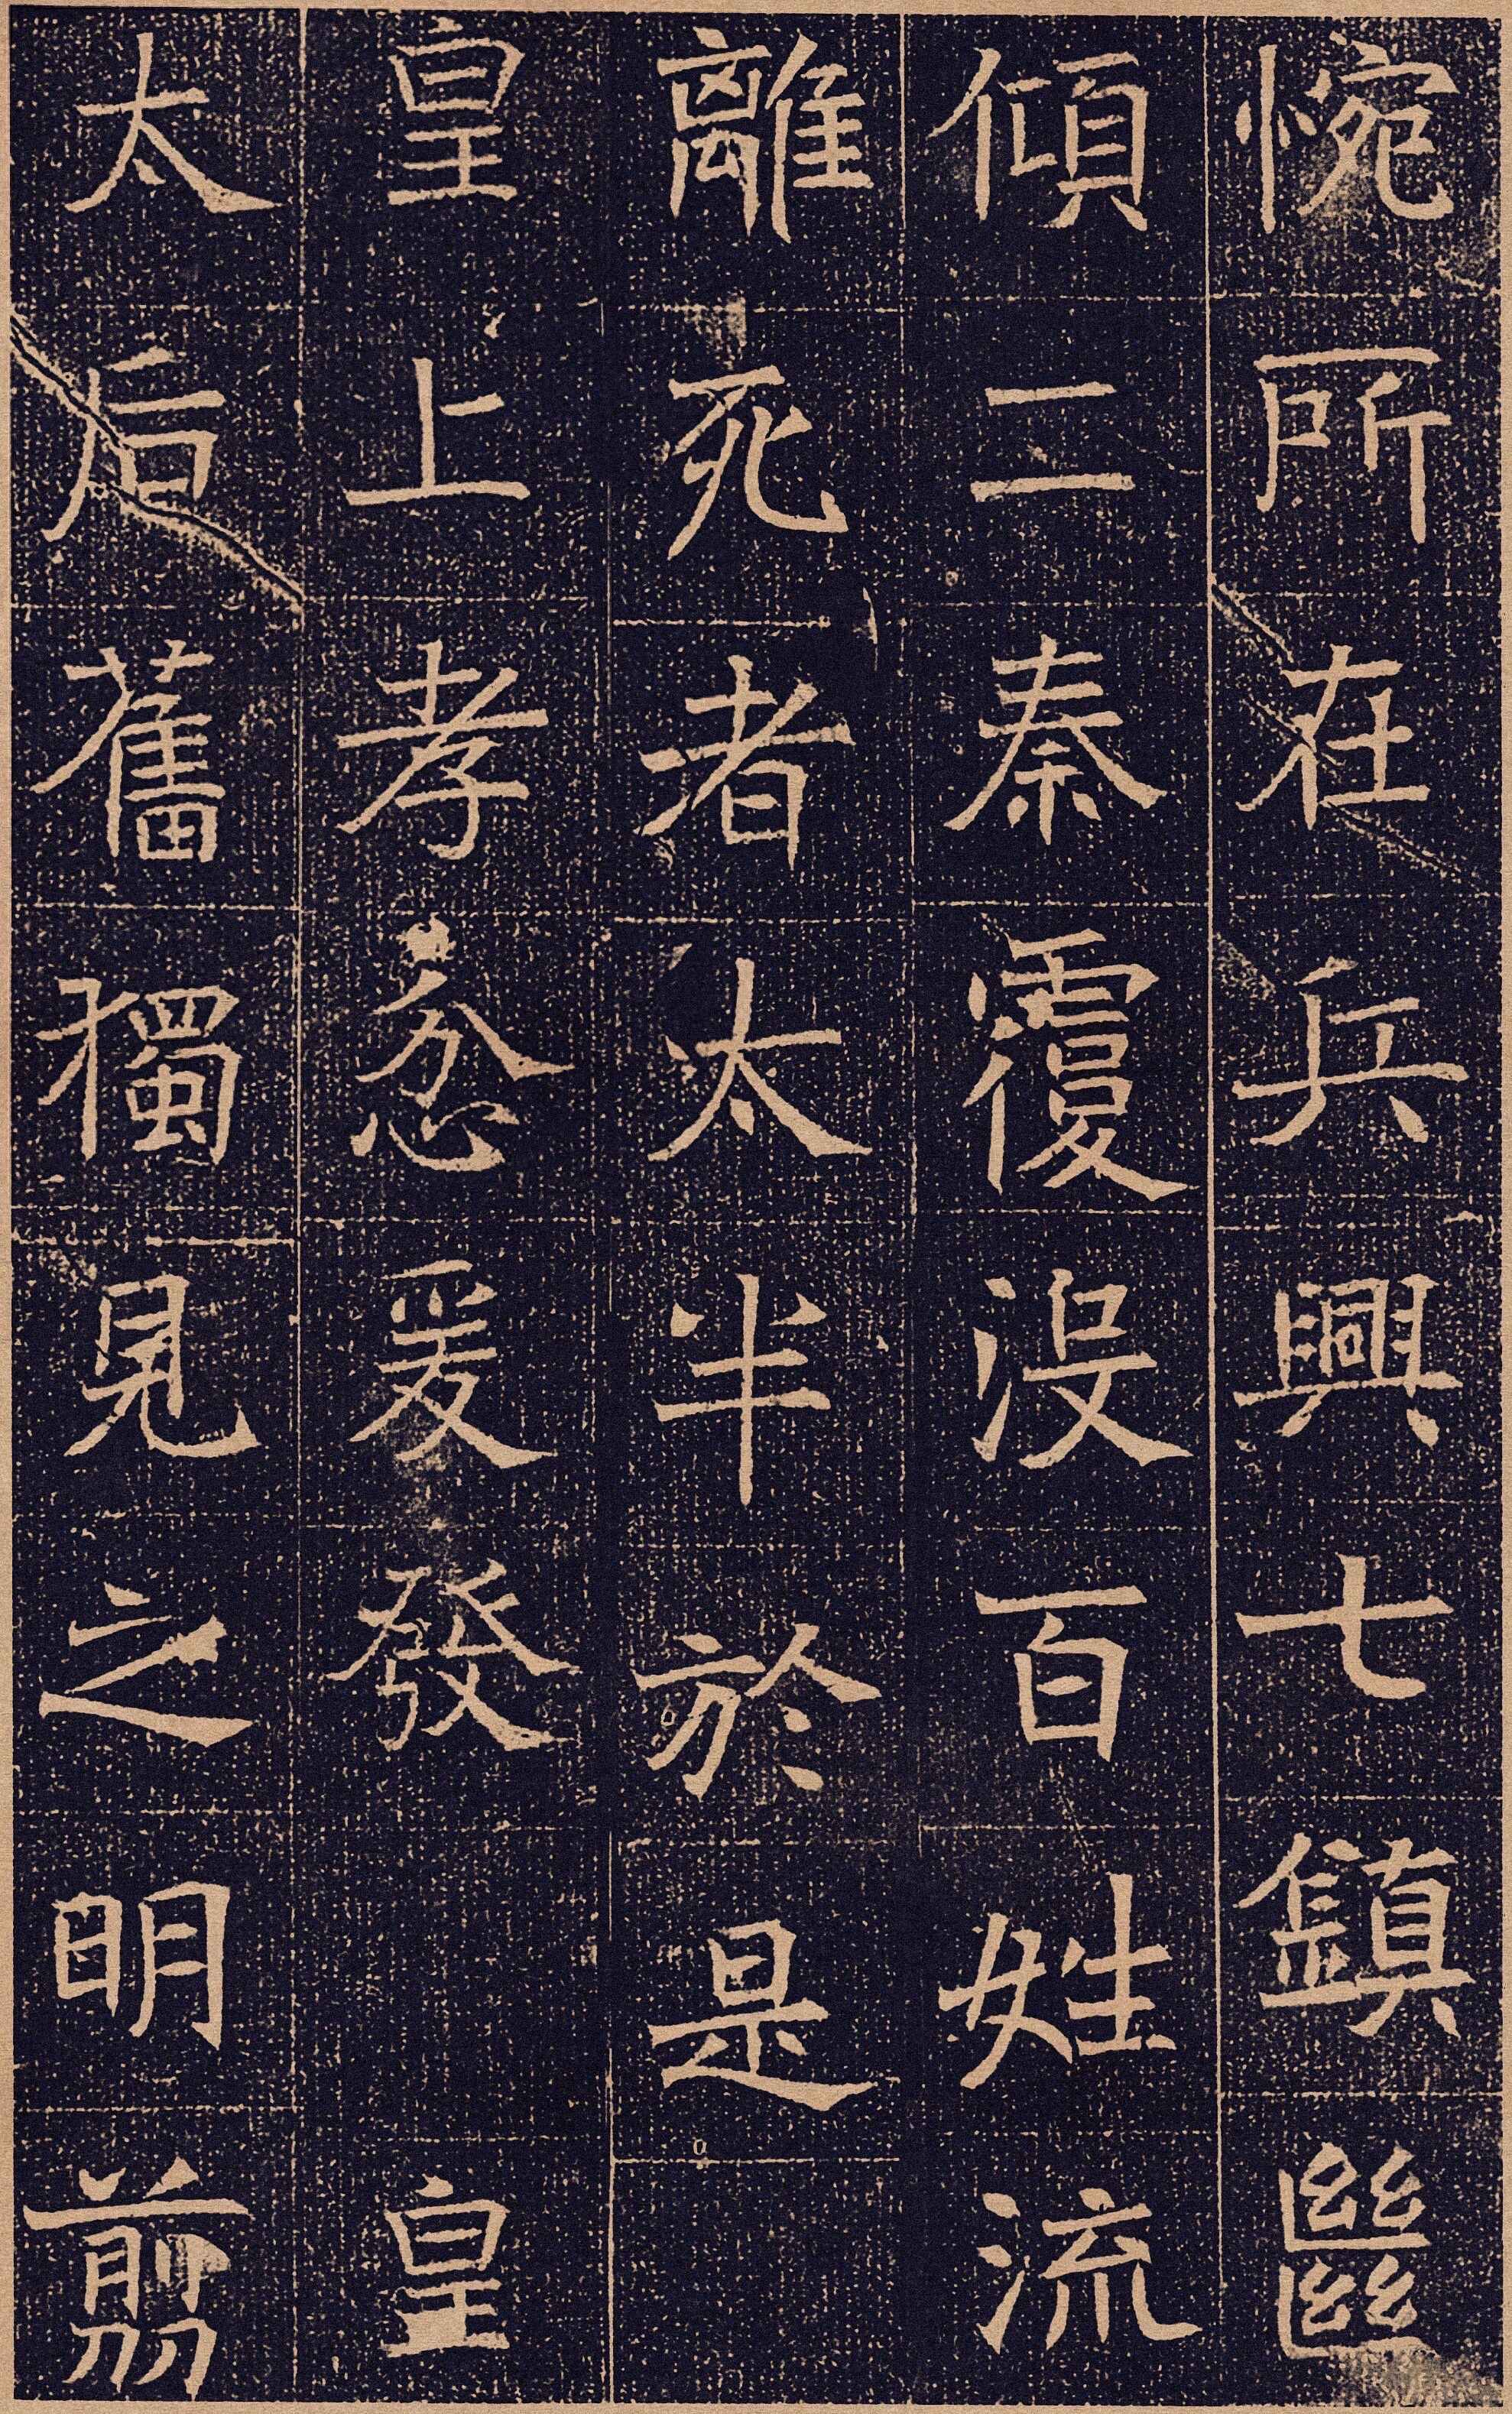 惋所在兵興七鎮㡭
傾二秦覆沒百姓流
離死者太半於是
皇上孝忿爰發　皇
太后舊獨見之明翦